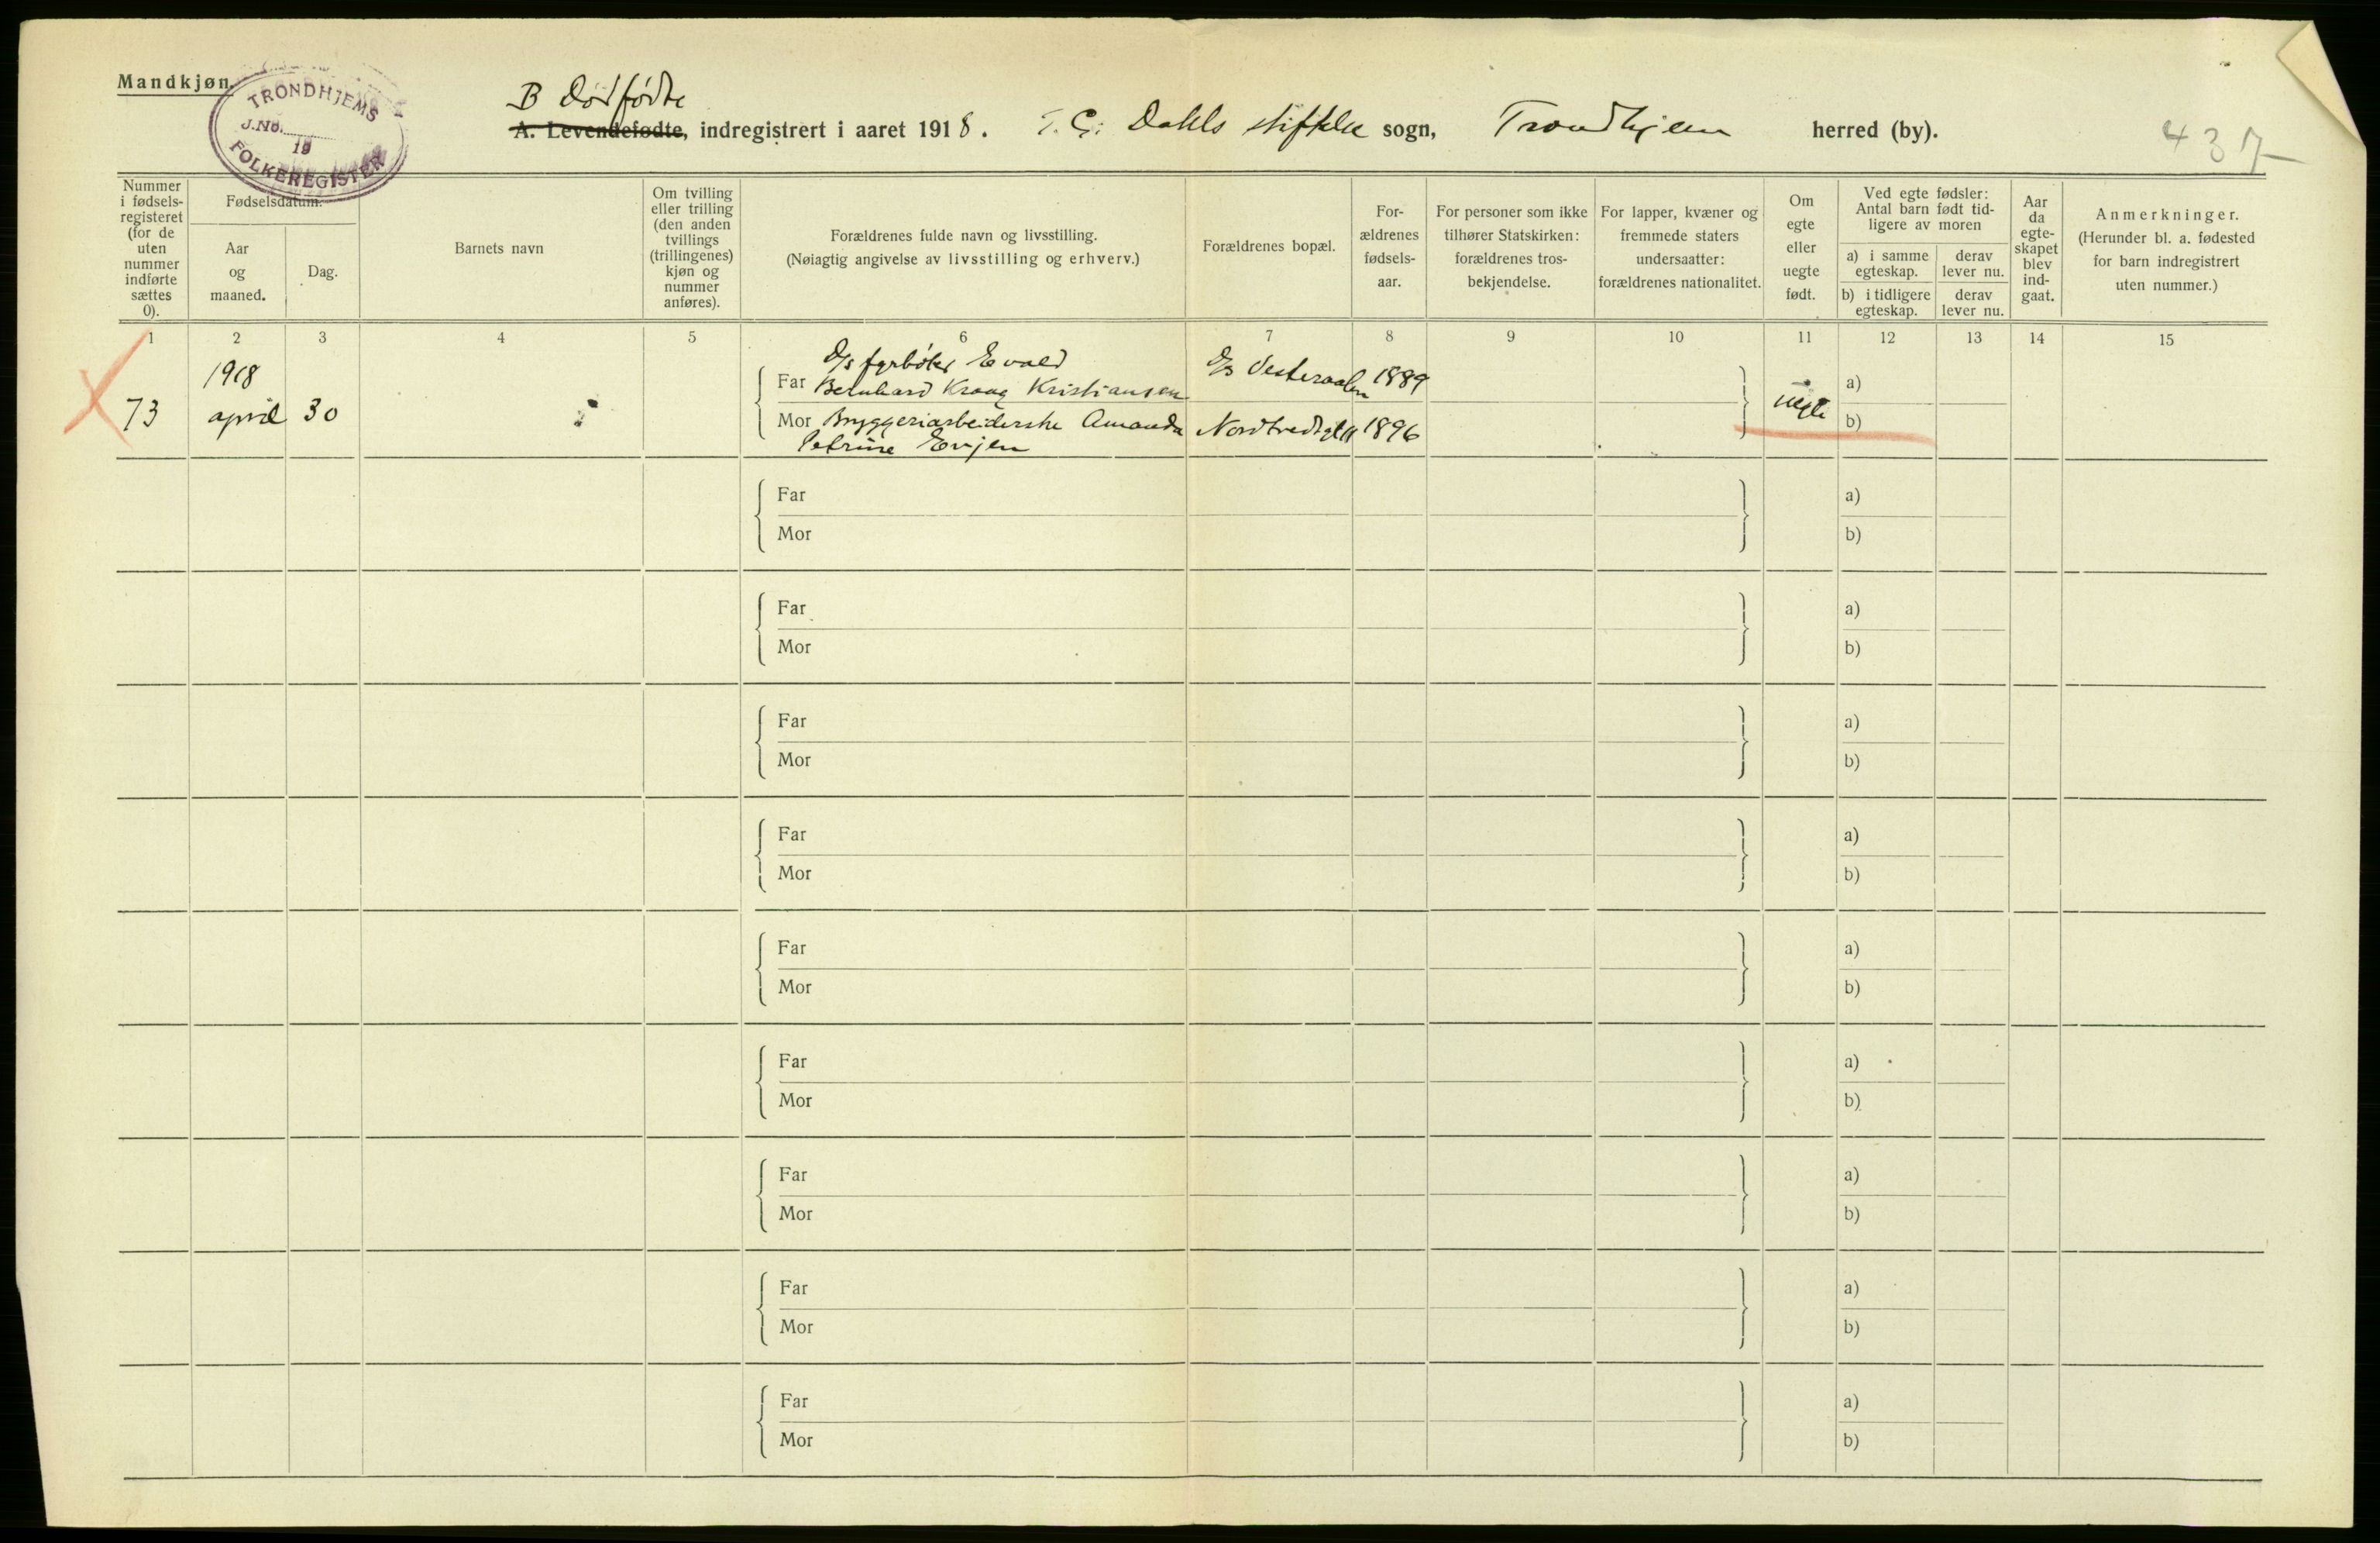 Mandkjøn.
TRONDHJEMS
J.No.
19
FOLKEREGISTER
B Dødfødte
A. Levendefødte, indregistrert i aaret 1918. E. C. Dahls stiftelse sogn, Trondhjem herred (by).
437
Nummer i fødsels-registeret (for de uten nummer indførte sættes 0).
Fødselsdatum.
Aar og maaned.
Dag.
Barnets navn
Om tvilling eller trilling (den anden tvillings (trillingenes) kjøn og nummer anføres).
Forældrenes fulde navn og livsstilling.
(Nøiagtig angivelse av livsstilling og erhverv.)
Forældrenes bopæl.
For-ældrenes fødsels-aar.
For personer som ikke tilhører Statskirken: forældrenes tros-bekjendelse.
For lapper, kvæner og fremmede staters undersaatter: forældrenes nationalitet.
Om egte eller uegte født.
Ved egte fødsler:
Antal barn født tid-ligere av moren
a) i samme egteskap.
derav lever nu.
b) i tidligere egteskap.
derav lever nu.
Aar da egte-skapet blev ind-gaat.
Anmerkninger.
(Herunder bl. a. fødested for barn indregistrert uten nummer.)
1 2 3 4 5 6 7 8 9 10 11 12 13 14 15
D/s fyrbøter Evald
1918
Far Bernhard Kraag Kristiansen D/s Vesteraalen 1889 a)
73 april 30 uegte
Mor Bryggeriarbeiderske Amanda 1896 b)
Petrine Evjen
Far a)
Mor b)
Far a)
Mor b)
Far a)
Mor b)
Far a)
Mor b)
Far a)
Mor b)
Far a)
Mor b)
Far a)
Mor b)
Far a)
Mor b)
Far a)
Mor b)